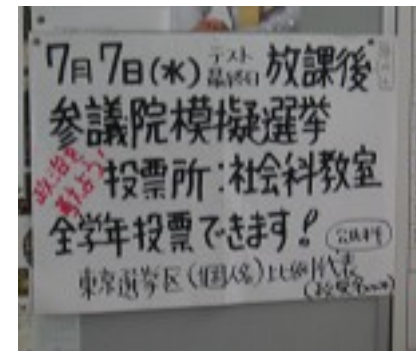 7月7日(水) テスト最終日 放課後
参議院模擬選挙
政治を考えよう!
投票所:社会科教室
全学年投票できます! 公民科
東京選挙区(個人名)比例代表